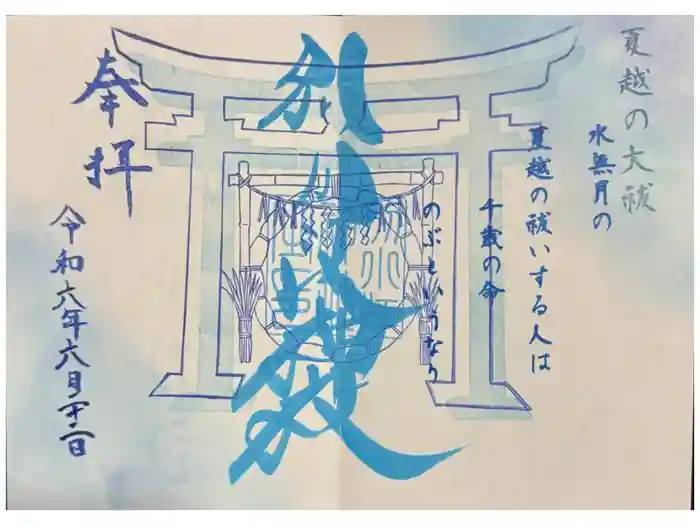 夏越の大祓
水無月の
夏越の祓いする人は
千歳の命
のぶというなり
別小江
奉拝
令和六年六月二十二日